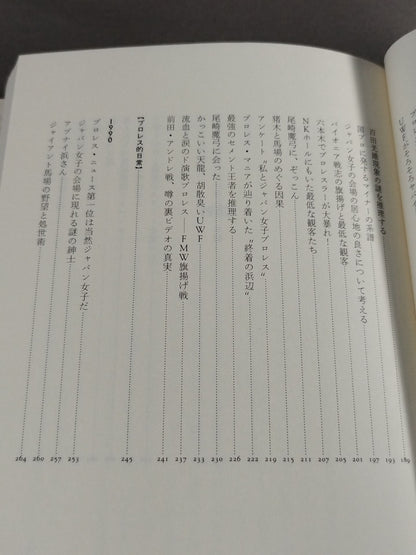 百田光雄現象の謎を推理する 189
国プロに発するマイナーの系譜 193
ジャパン女子の会場の居心地の良さについて考える 197
パイオニア戦志の旗揚げと最低な観客 201
六本木でプロレスラーが大暴れ! 205
NKホールにもいた最低な観客たち 207
尾崎魔弓に、ぞっこん 211
猪木と馬場のめぐる因果 215
アンケート〝私とジャパン女子プロレス〟 219
プロレス・マニアが辿り着いた〝終着の浜辺〟 222
最強のセメント王者を推理する 226
尾崎魔弓に会った 230
かっこいい天龍、胡散臭いUWF 233
流血と涙のド演歌プロレス─FMW旗揚げ戦 237
前田・アンドレ戦、噂の裏ビデオの真実 241
【プロレス的日常】 245
1990
プロレス・ニュース第一位は当然ジャパン女子だ 253
ジャパン女子の会場に現れる謎の紳士 257
アブナイ浜さん 260
ジャイアント馬場の野望と処世術 264